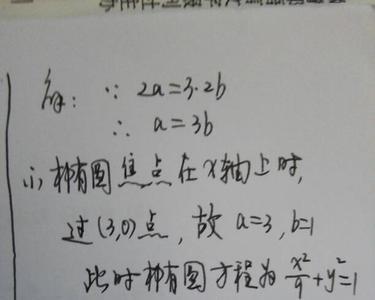 解: ∵ 2a=3·2b
∴ a=3b
(1) 椭圆焦点在x轴上时,
过(3,0)点, 故 a=3, b=1
此时椭圆方程为 x²/9+y²=1